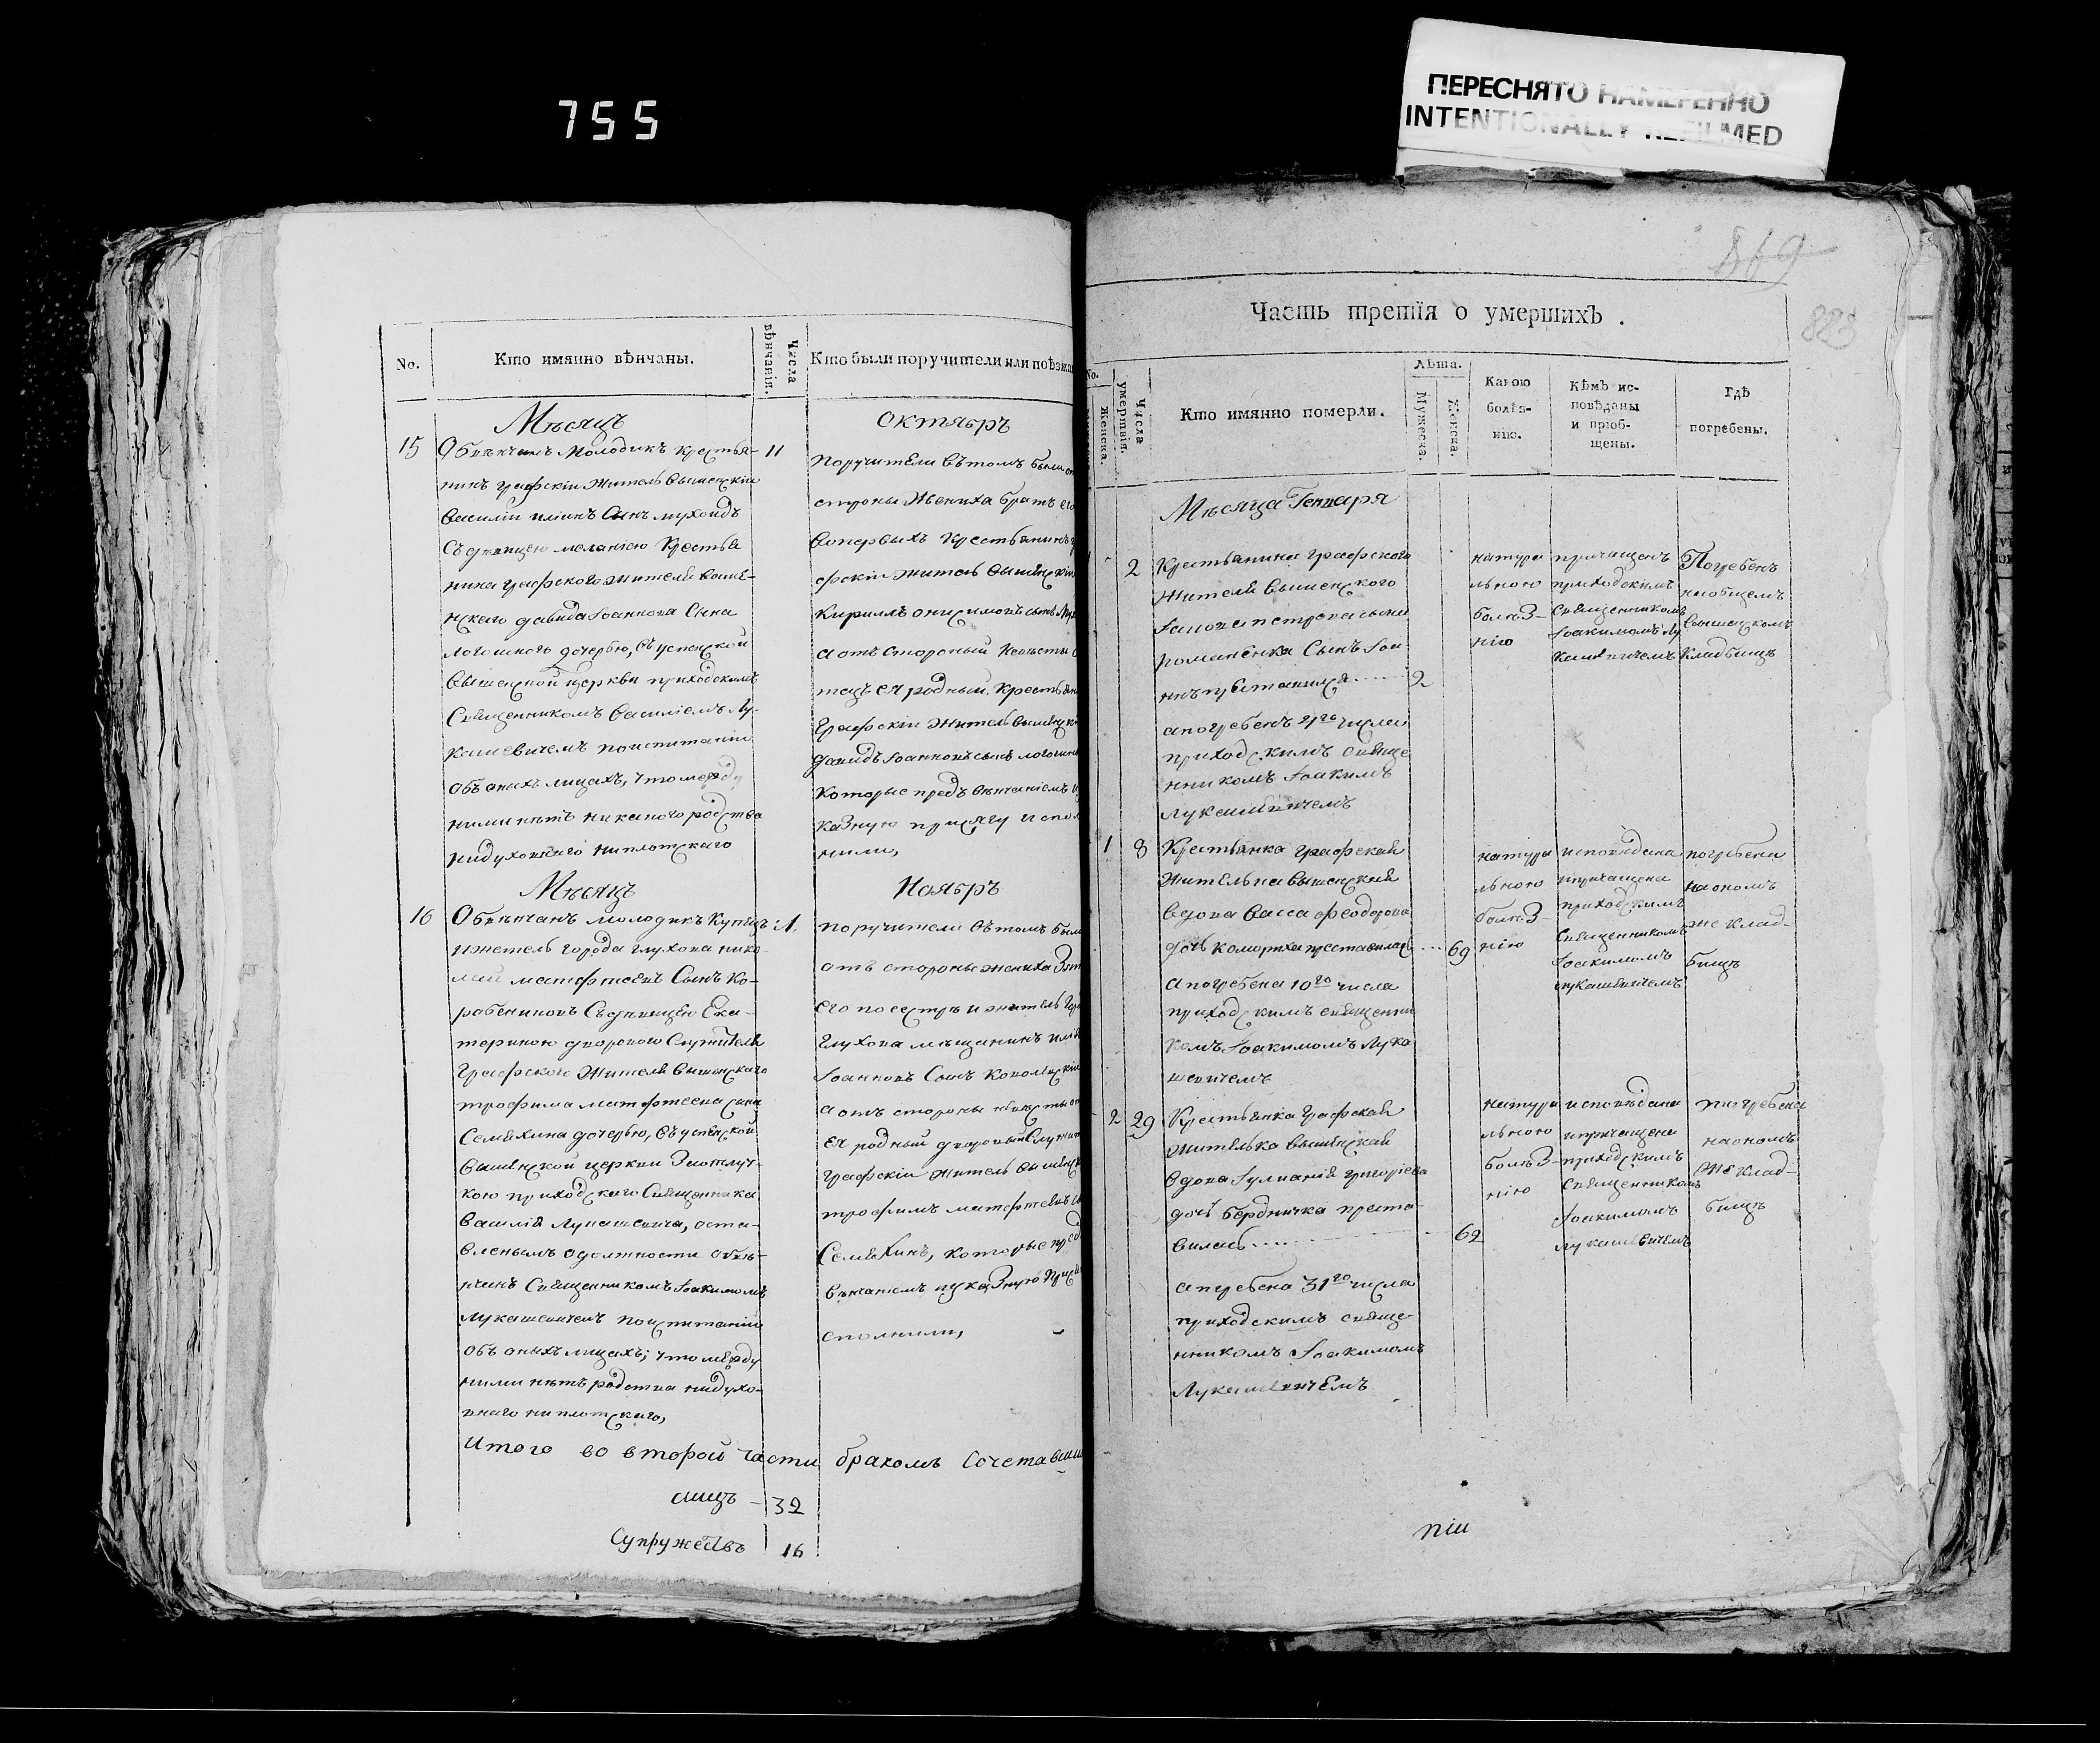 755
ПЕРЕСНЯТО НАМЕРЕННО
INTENTIONALLY REFILMED
No.
Кто имянно вѣнчаны.
Числа вѣнчанія.
Кто были поручители или поѣзжа
Мѣсяцъ
октябръ
15
Обвѣнчанъ молодикъ крестья-
11
нинъ графскій житель вышенскій
Василій Сынъ
Съ девицею меланіею крестья
нина графского жителя выше-
нского давида Іоаннова Сына
дочерью, въ успенской
вышенской церкви приходскимъ
Священникомъ Василіемъ Лу-
кашевичемъ поиспитаніи
объ оныхъ лицахъ, что между
ними нѣтъ никакого родства
нидуховнаго ниплотскаго
поручители вътомъ были
стороны жениха братъ его
вопервыхъ крестьянинъ
фскій житель вышенскій
Кириллъ онисимовъ сынъ
а отъ стороный невѣсты
тецъ ея родный крестьян
графскій житель вышенск
давидъ Іоанновъ сынъ
которые предъ вѣнчаніемъ
казную присягу испол
нили,
Мѣсяцъ
Ноябръ
16
Обвѣнчанъ молодикъ купецъ
1.
ижетель города глухова нико-
лай матфтеевъ Сынъ Ко-
робениковъ Съ девицею Ека-
териною дворового Служителя
Графского жителя вышенскаго
трофима матфтеева сына
Семяхина дочерью, въ успенской
вышенской церкви Заотлуч-
кою приходского Священника
василія Лукашевича, оста-
вленымъ одолжности обвѣ-
нчанъ Священникомъ Іоакимомъ
Лукашевичемъ поиспитаніи
объ оныхъ лицахъ; что между
ними нѣтъ родства нидухо-
внаго ниплотскаго,
поручители вътомъ были
отъ стороны жениха Зят
его посестрѣ и житель Гор
глухова мѣщанинъ
Іоанновъ Сынъ
а отъ стороны невѣсты от
ея родный дворовый Служит
графскій житель вышенск
трофимъ матфтеевъ
Семяхинъ, которые пред
вѣнчаніемъ указную Прися
сполнили,
Итого во второй части бракомъ Сочетавши
лицъ - 32
Супружествъ 16
869
823
Часть третія о умершихъ.
No.
Женска.
Числа умертвія.
Кто имянно померли.
Лѣта.
Мужеска.
Женска.
Какою болѣз-нію.
Кѣмъ ис-повѣданы и пріоб-щены.
Гдѣ погребены.
Мѣсяца Генваря
2
Крестьянина графского
жителя вышенского
петрова сына
романенка Сынъ Іоа
ннъ преставился
2
апогребенъ 4го числа
приходскимъ свяще
нникомъ Іоакимъ
лукашевичемъ
натура
льною
болѣз-
нію
причащенъ
приходскимъ
Священникомъ
Іоакимомъ Лу
кашевичемъ
Погребенъ
наобщемъ
вышенскомъ
кладбищѣ
1
8
Крестьянка графская
жителька вышенская
вдова васса феодорова
дочь преставилась
69
апогребена 10го числа
приходскимъ священни
комъ Іоакимомъ Лука
шевичемъ
натура
льною
болѣз-
нію
исповѣдана
ипричащена
приходскимъ
Священникомъ
Іоакимомъ
лукашевичемъ
погребена
наономъ
же клад-
бищѣ
2
29
Крестьянка графская
жителька вышенская
вдова Іулианія григоріева
дочь Бердничка преста-
вилась
62
апогребена 31го числа
приходскимъ свяще
нникомъ Іоакимомъ
Лукашевичемъ
натура
льною
болѣз-
нію
исповѣдана
ипричащена
приходскимъ
Священникомъ
Іоакимомъ
лукашевичемъ
погребена
наономъ
же клад-
бищѣ